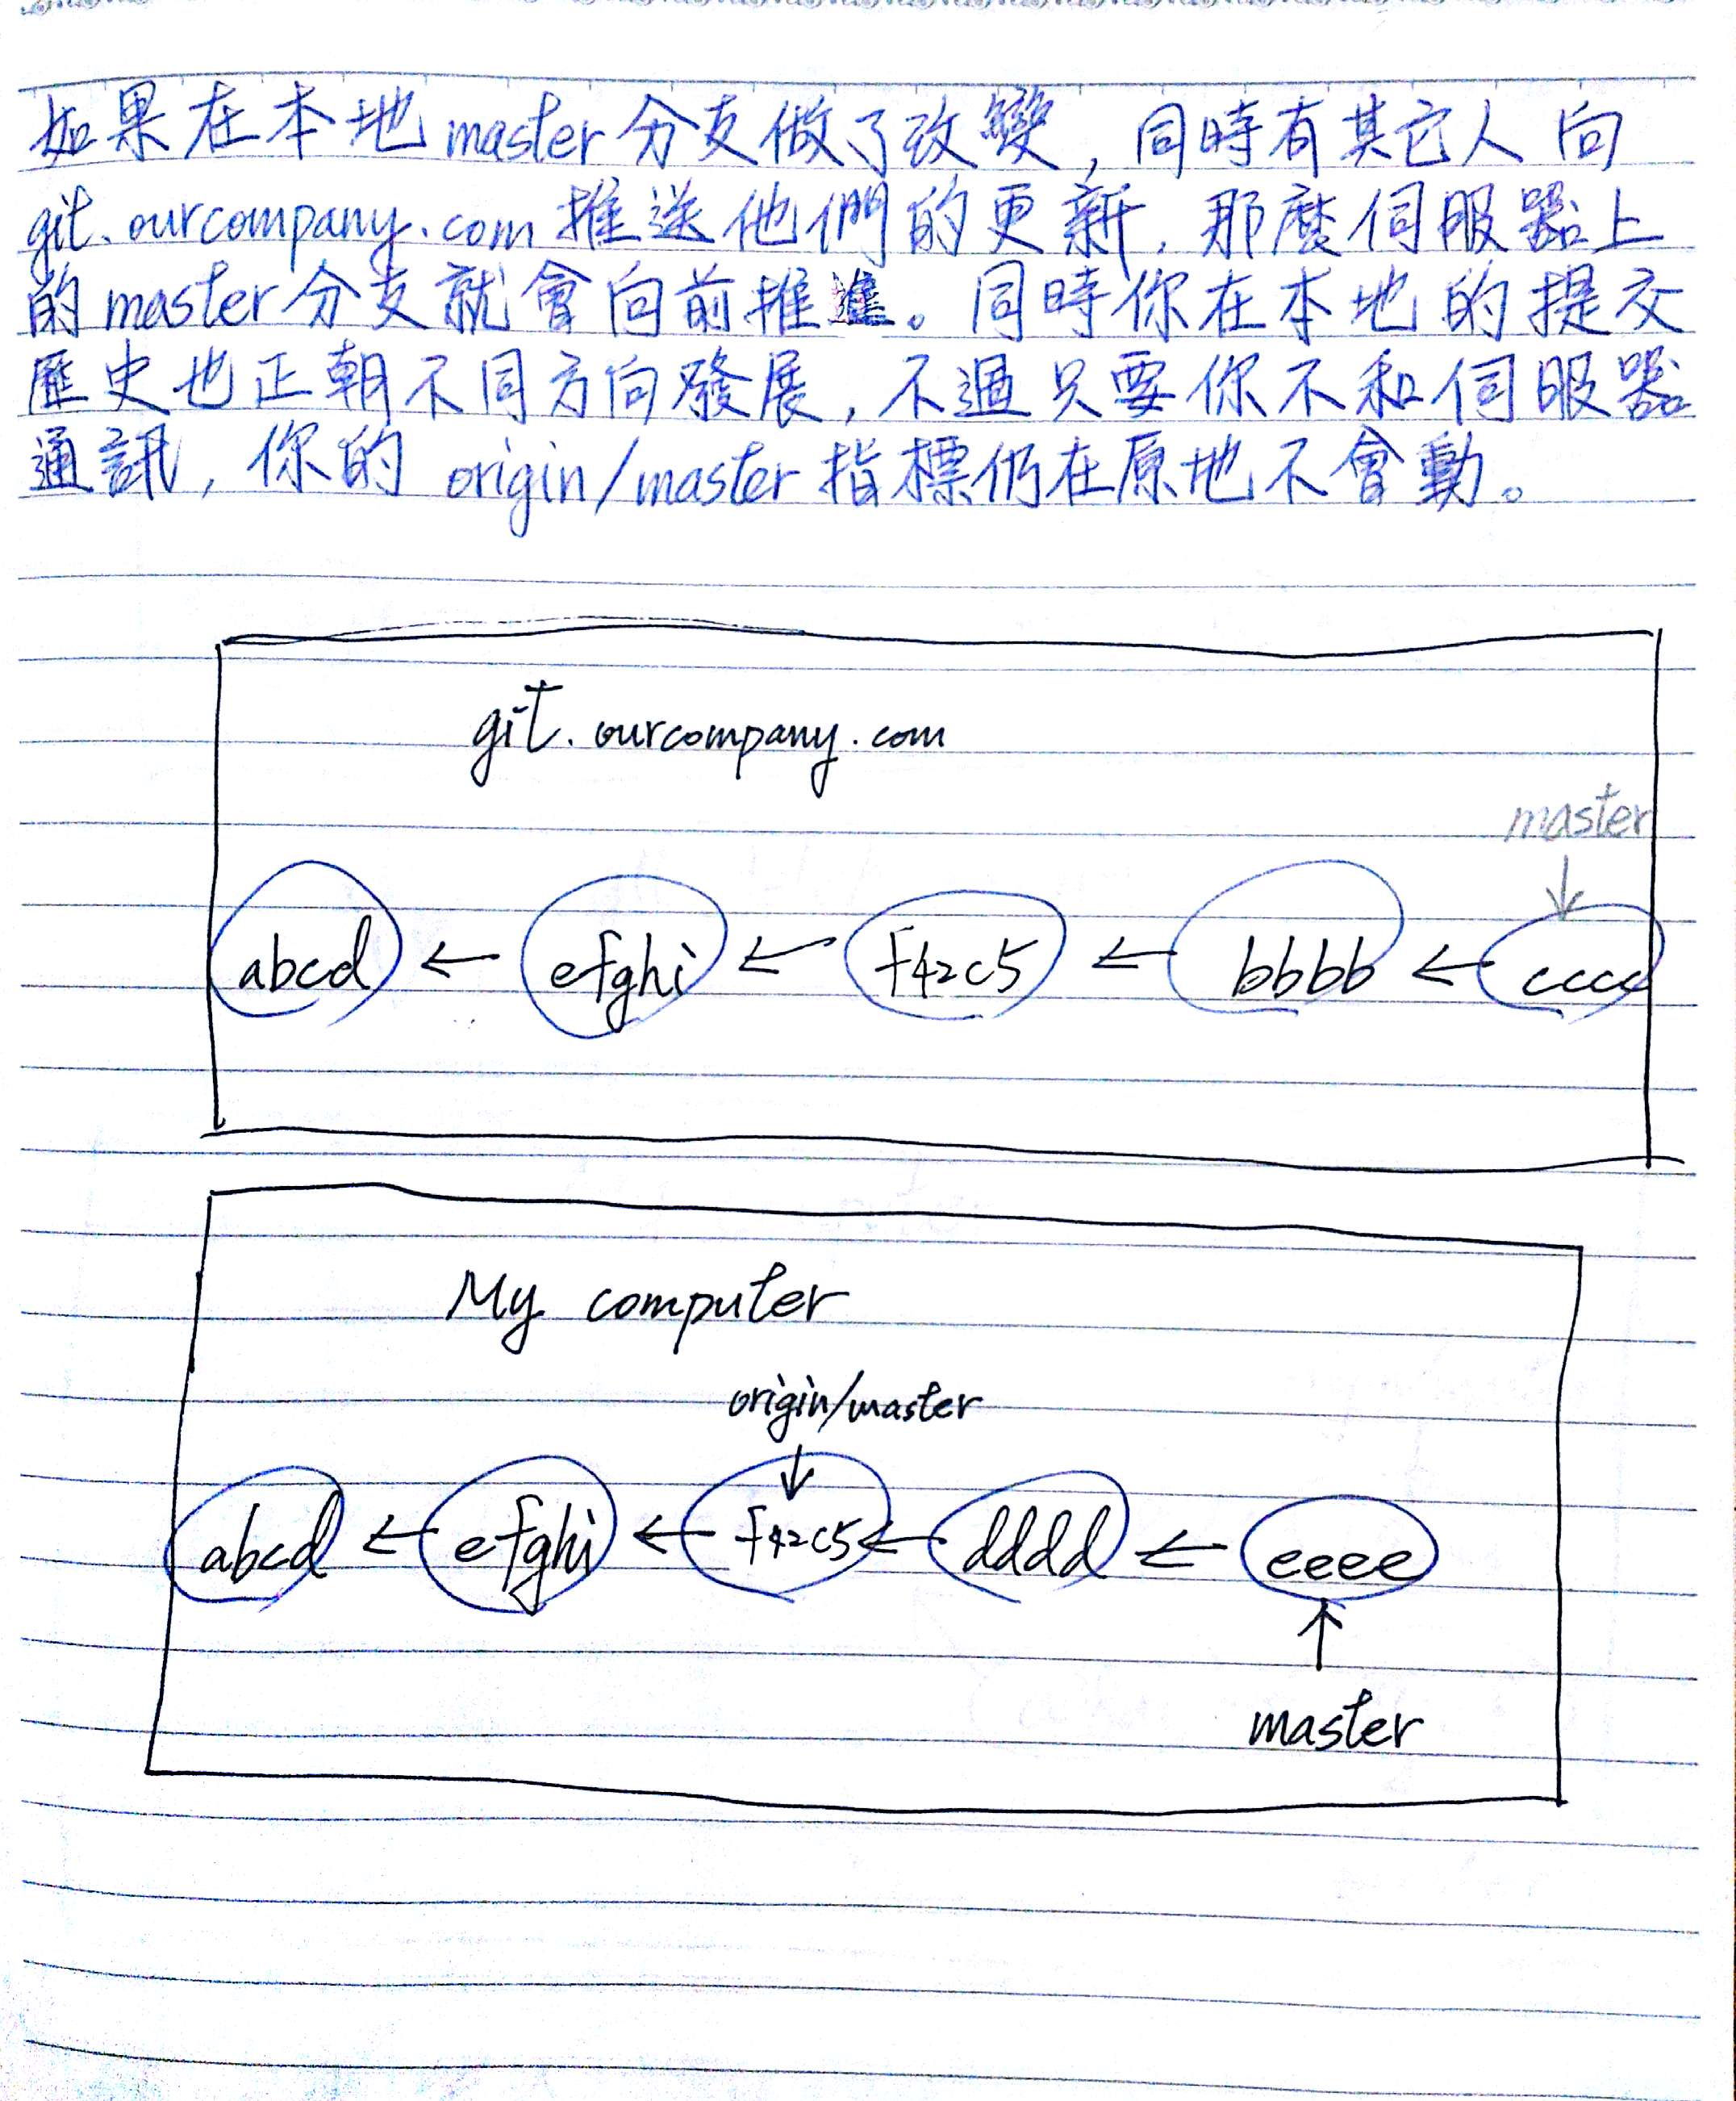 如果在本地master分支做了改變,同時有其它人向
git.ourcompany.com推送他們的更新,那麼伺服器上
的master分支就會向前推進。同時你在本地的提交
歷史也正朝不同方向發展,不過只要你不和伺服器
通訊,你的 origin/master指標仍在原地不會動。
git.ourcompany.com
master
abcd ← efghi ← f42c5 ← bbbb ← cccc
My computer
origin/master
abcd ← efghi ← f42c5 ← dddd ← eeee
master